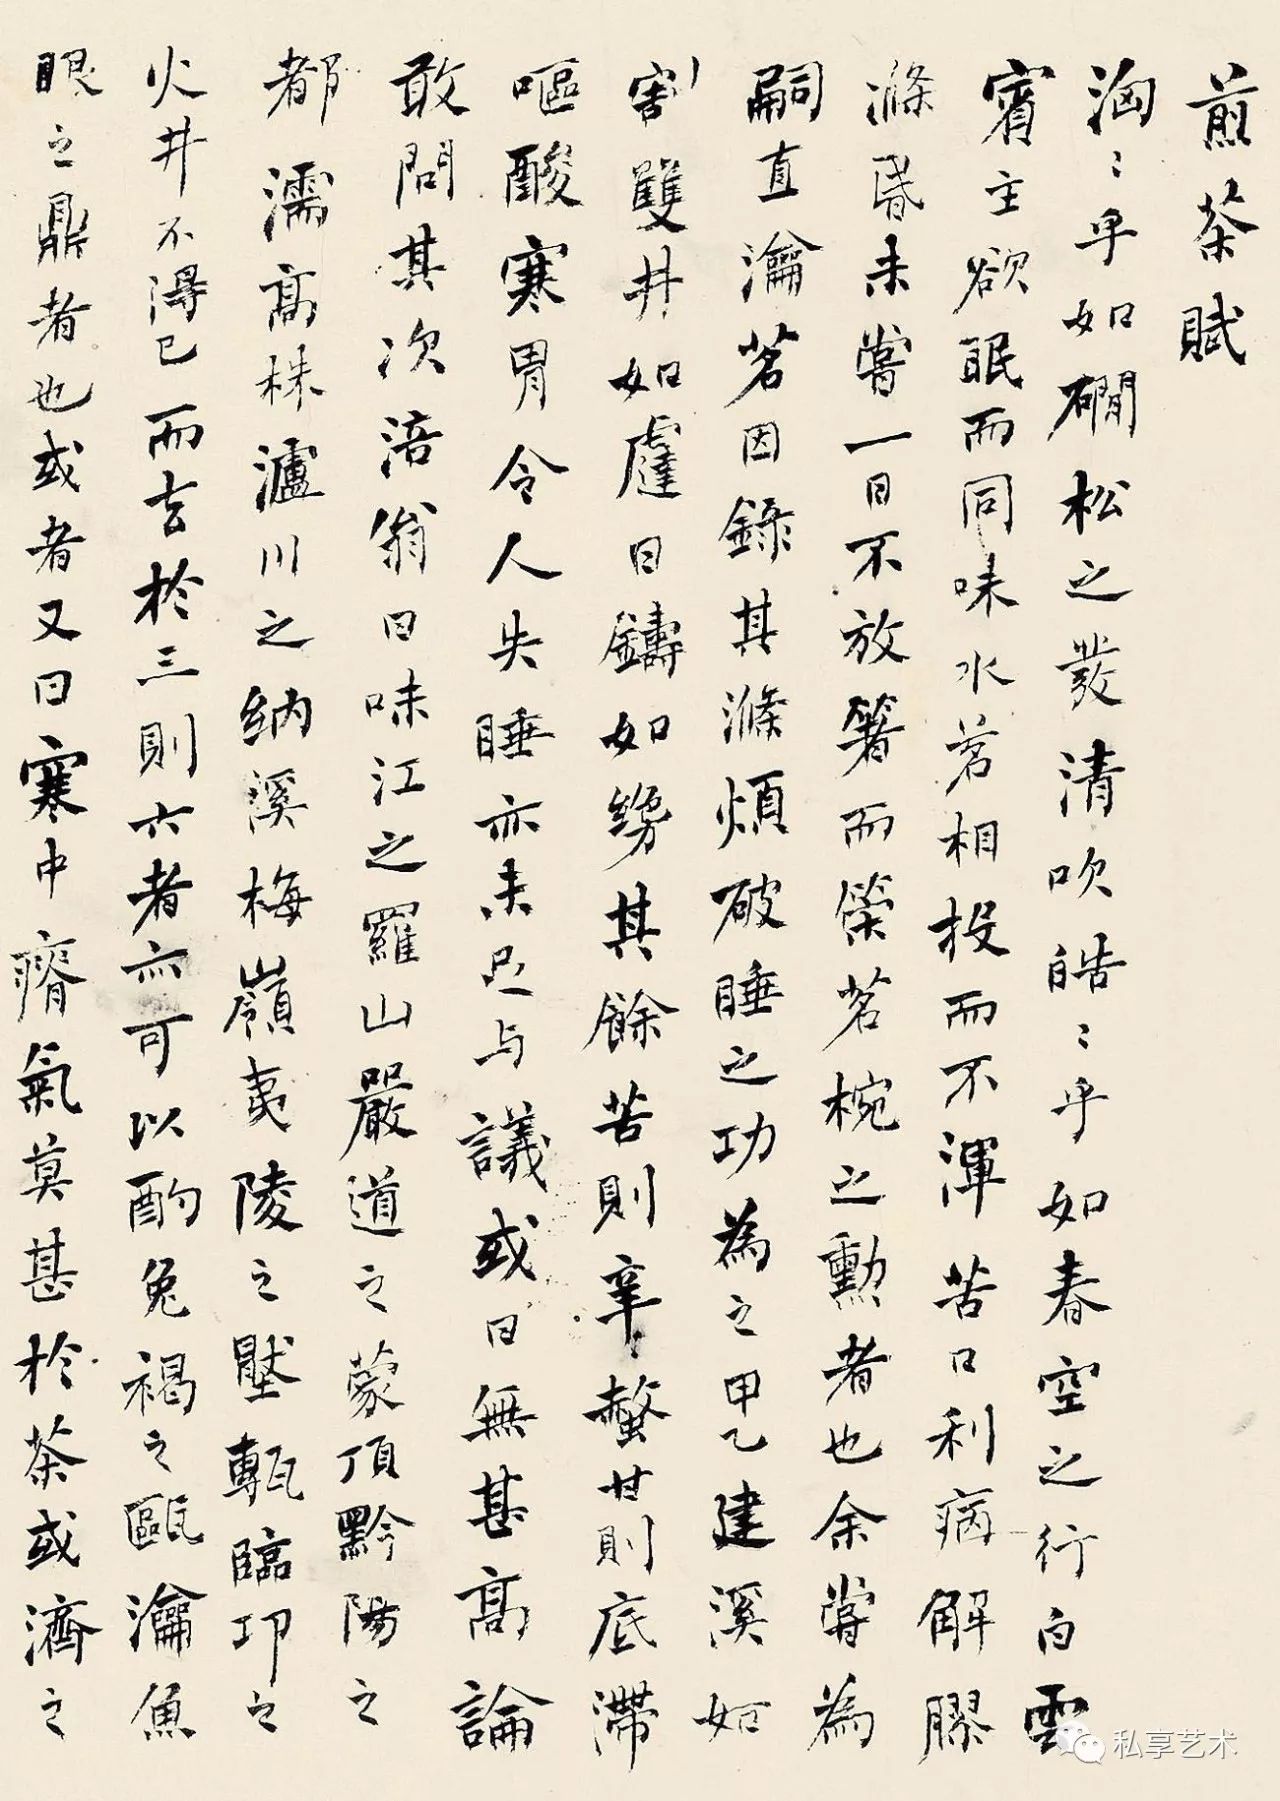 煎茶賦
洶〻乎如磵松之發清吹皓〻乎如春空之行白雲
賓主欲眠而同味水茗相投而不渾苦口利病解膠
滌昏未嘗一日不放箸而策茗椀之勳者也余嘗為
嗣直瀹茗因錄其滌煩破睡之功為之甲乙建溪如
割雙井如日鑄如其餘苦則辛螫甘則底滯
嘔酸寒胃令人失睡亦未足与議或曰無甚高論
敢問其次涪翁曰味江之羅山嚴道之蒙頂黔陽之
都濡高株瀘川之納溪梅嶺夷陵之壓甎臨邛之
火井不得已而去於三則六者亦可以酌兔褐之甌瀹魚
眼之鼎者也或者又曰寒中瘠氣莫甚於茶或濟之
私享艺术